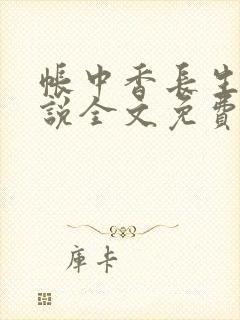 帳中香長生
說全文免費
庫卡